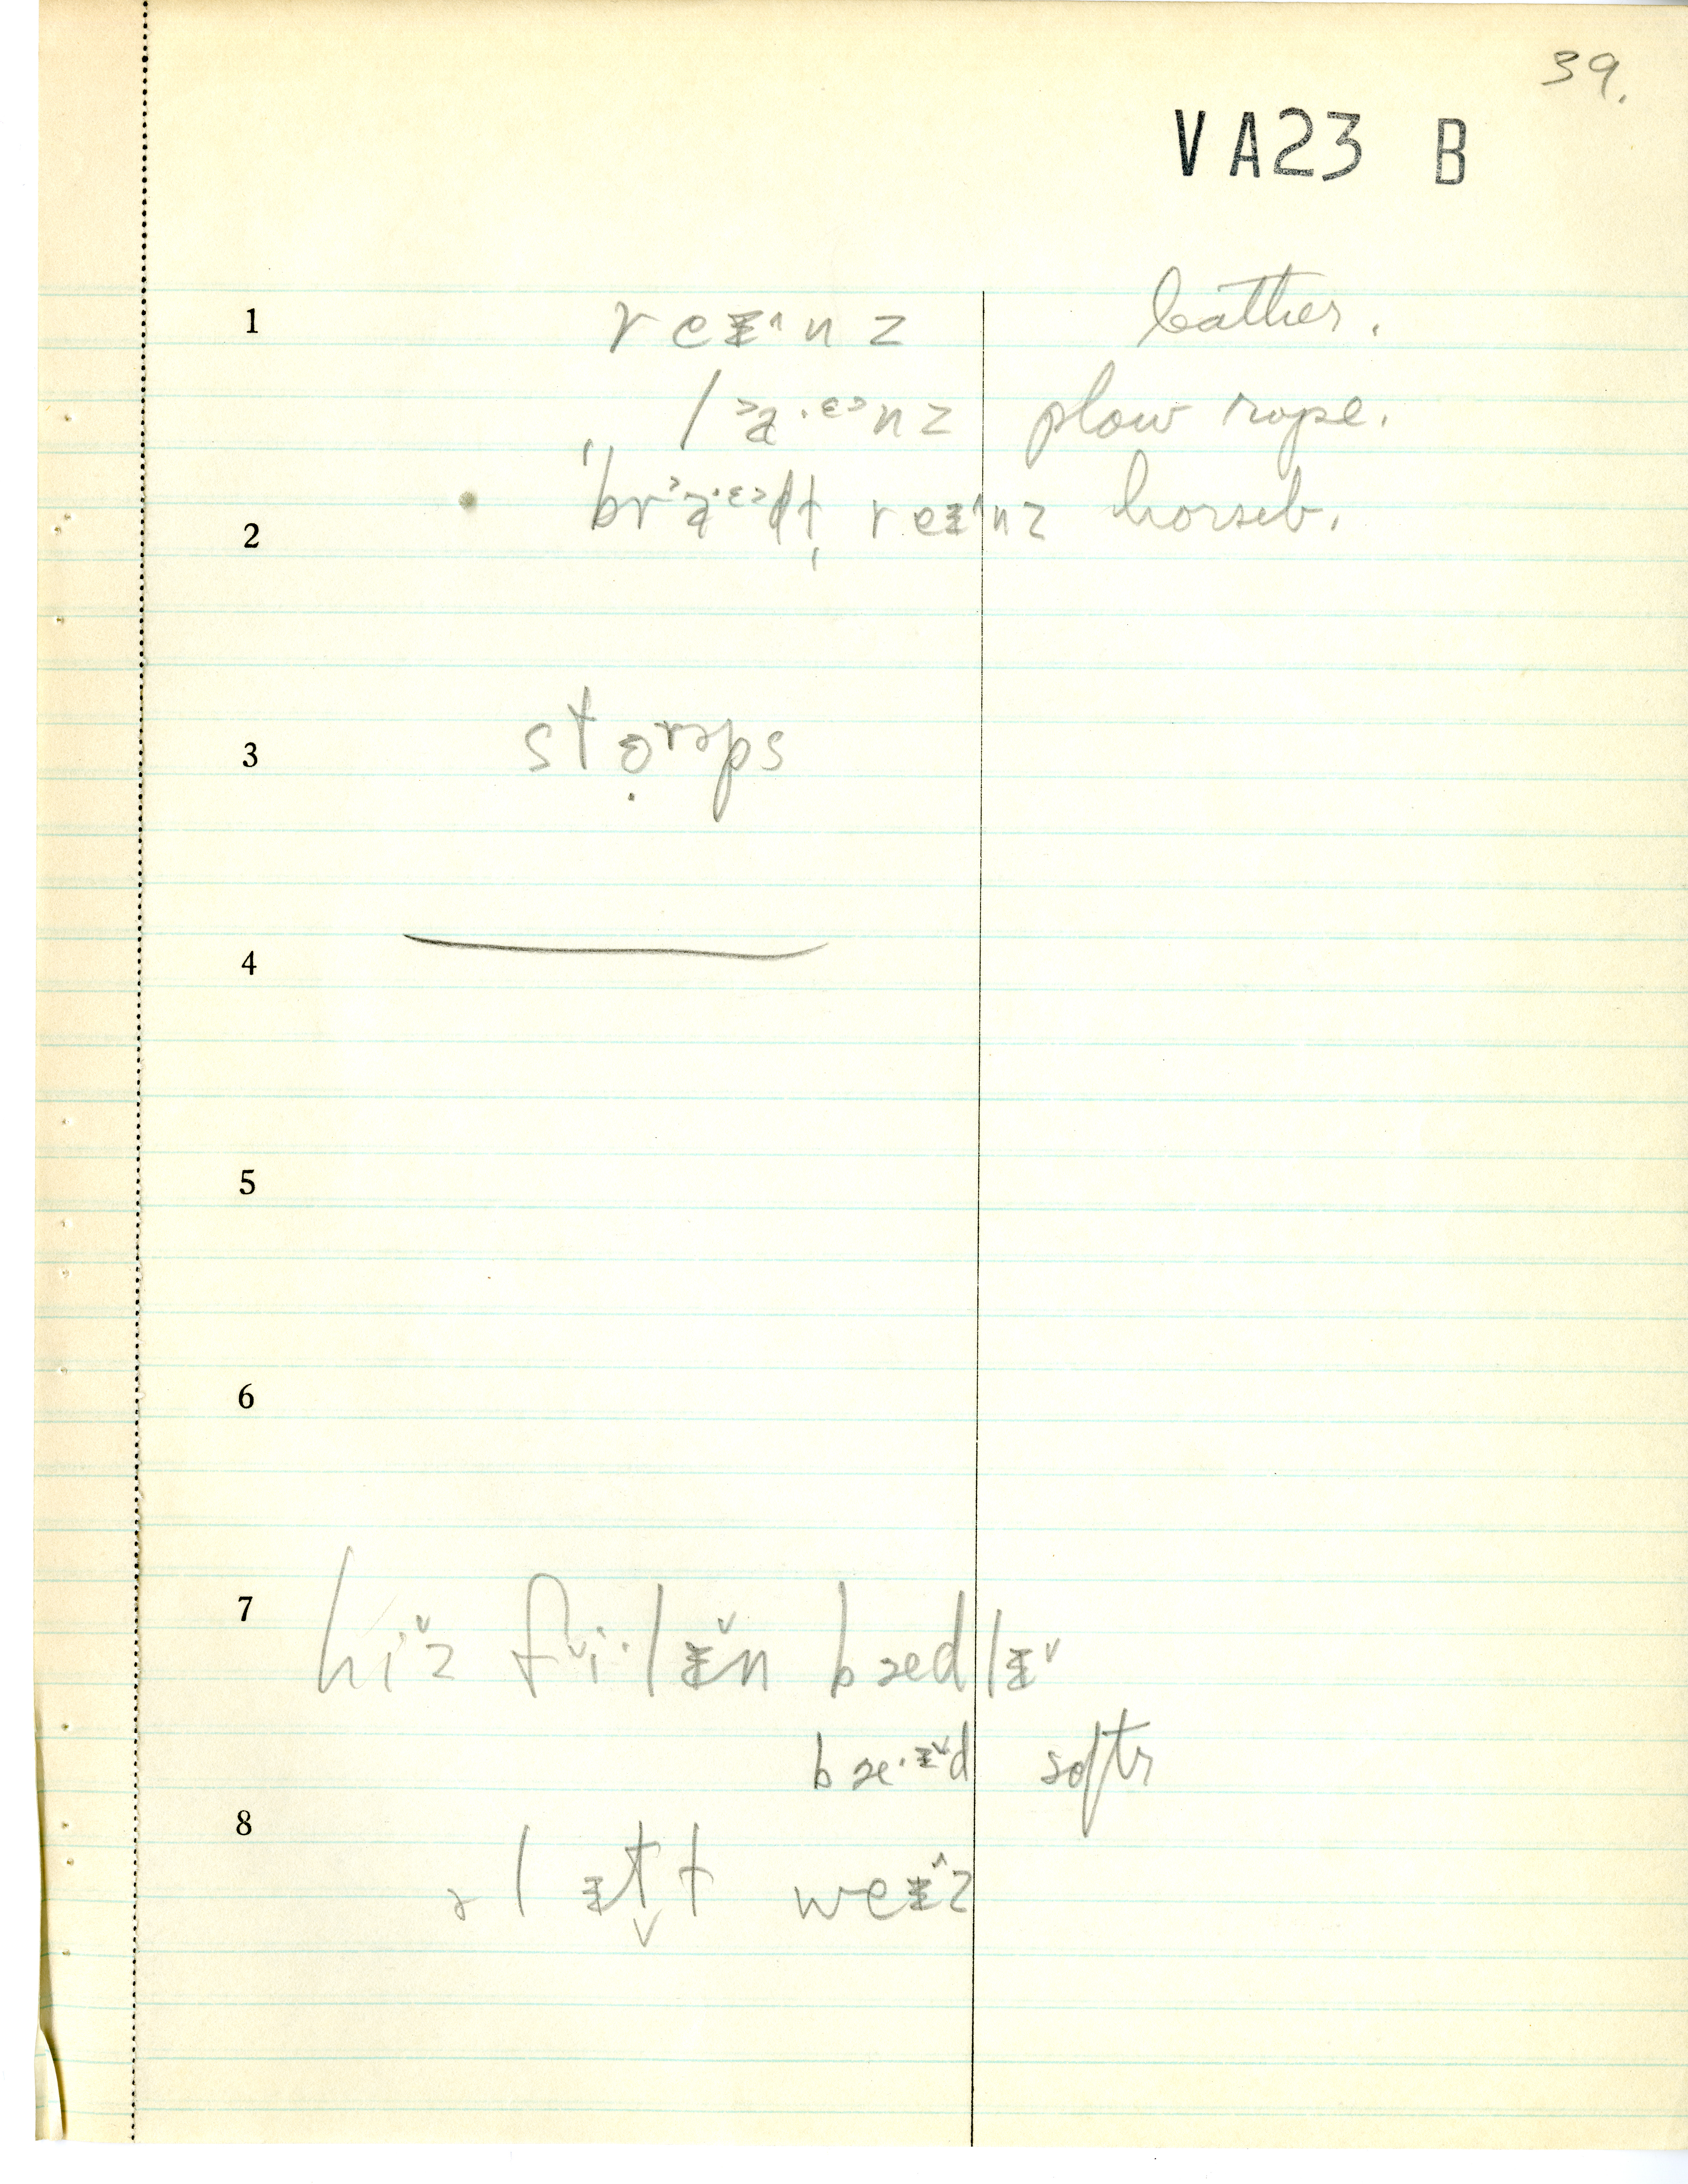 39.
VA23 B
1 reᵻ˄nz leather.
la·ᵋᵊnz plow rope.
2 'bra·ᵋᵊdɫ reᵻ˄nz horseb.
3 stɵrəps
4
5
6
7 hi˅z f˅i·lᵻ˅n bædlᵻ˅
bæ·ᵻ˅d softr
8 ə lᵻt̬ɫ weᵻ˄z